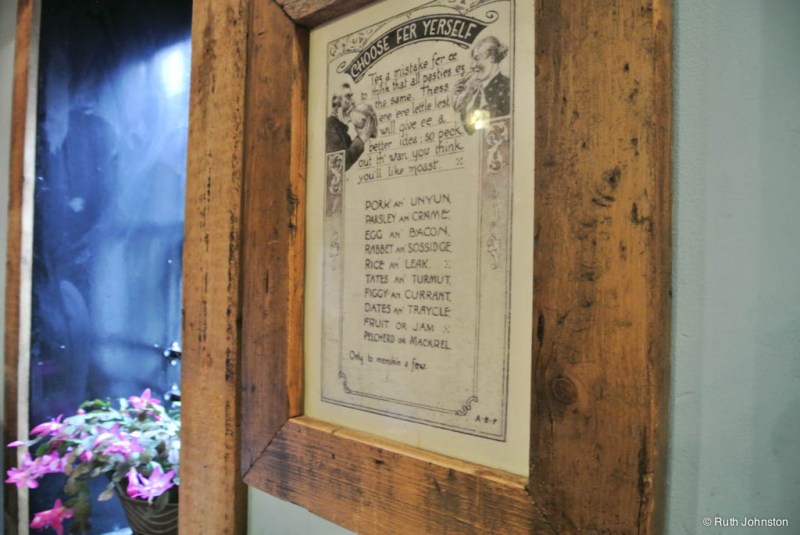 CHOOSE FER YERSELF
'Tes a mistake fer ee
to think that all pasties es
the same. These
ere ere lettle lest
will give ee a
better idea: so peck
out th' wan you think
you'll like moast.
PORK AN' UNYUN,
PARSLEY AN CRAME
EGG AN' BACON,
RABBET AN' SOSSIDGE
RICE AN' LEAK.
TATES AN' TURMUT,
FIGGY AN CURRANT,
DATES AN' TRAYCLE
FRUIT OR JAM
PELCHERD OR MACKREL
Only to menshin a few.
A·E·P
© Ruth Johnston